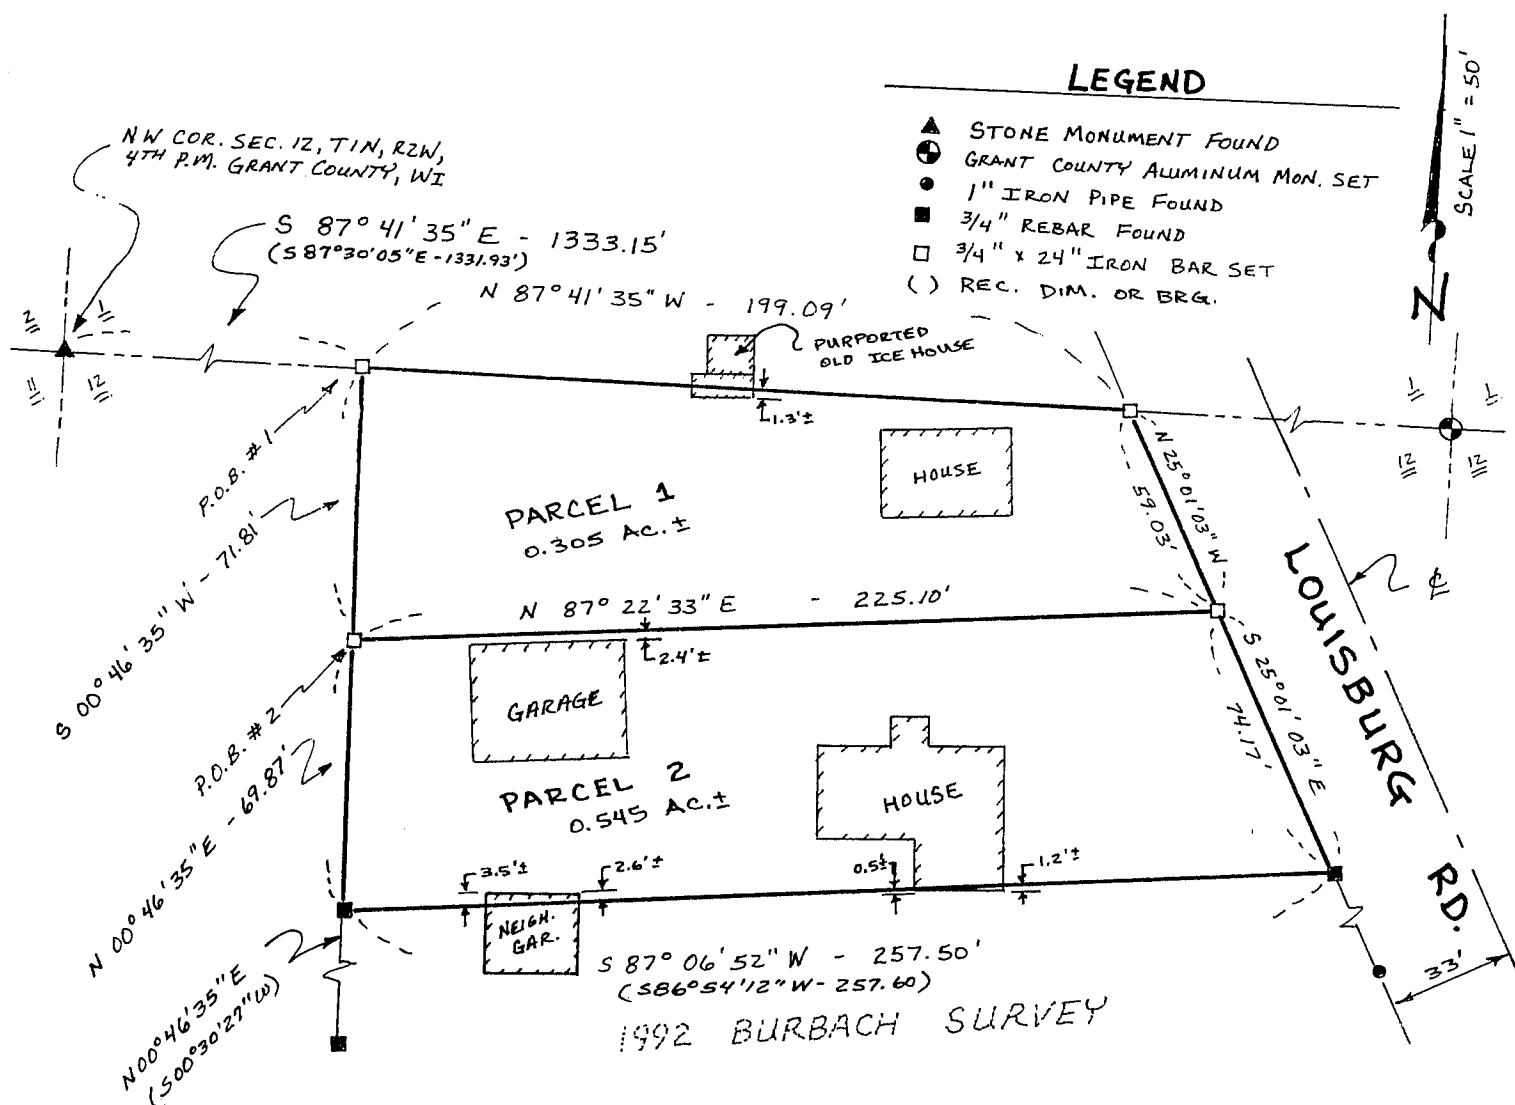 LEGEND
STONE MONUMENT FOUND
GRANT COUNTY ALUMINUM MON. SET
1" IRON PIPE FOUND
3/4" REBAR FOUND
3/4" x 24" IRON BAR SET
( ) REC. DIM. OR BRG.
SCALE 1" = 50'
N
NW COR. SEC. 12, T1N, R2W,
4TH P.M. GRANT COUNTY, WI
S 87° 41' 35" E - 1333.15'
(S 87°30'05"E - 1331.93')
N 87° 41' 35" W - 199.09'
PURPORTED
OLD ICE HOUSE
2
1
11
12
1
1
12
12
1.3'±
P.O.B. #1
HOUSE
N 25°01'03" W
59.03'
PARCEL 1
0.305 AC.±
S 00° 46' 35" W - 71.81'
N 87° 22' 33" E - 225.10'
2.4'±
℄
LOUISBURG RD.
GARAGE
S 25°01'03" E
74.17'
P.O.B. #2
PARCEL 2
0.545 AC.±
HOUSE
N 00° 46' 35" E - 69.87'
3.5'±
2.6'±
0.5'±
1.2'±
NEIGH.
GAR.
S 87° 06' 52" W - 257.50'
(S86°54'12"W - 257.60)
33'
1992 BURBACH SURVEY
N00°46'35"E
(S00°30'27"W)